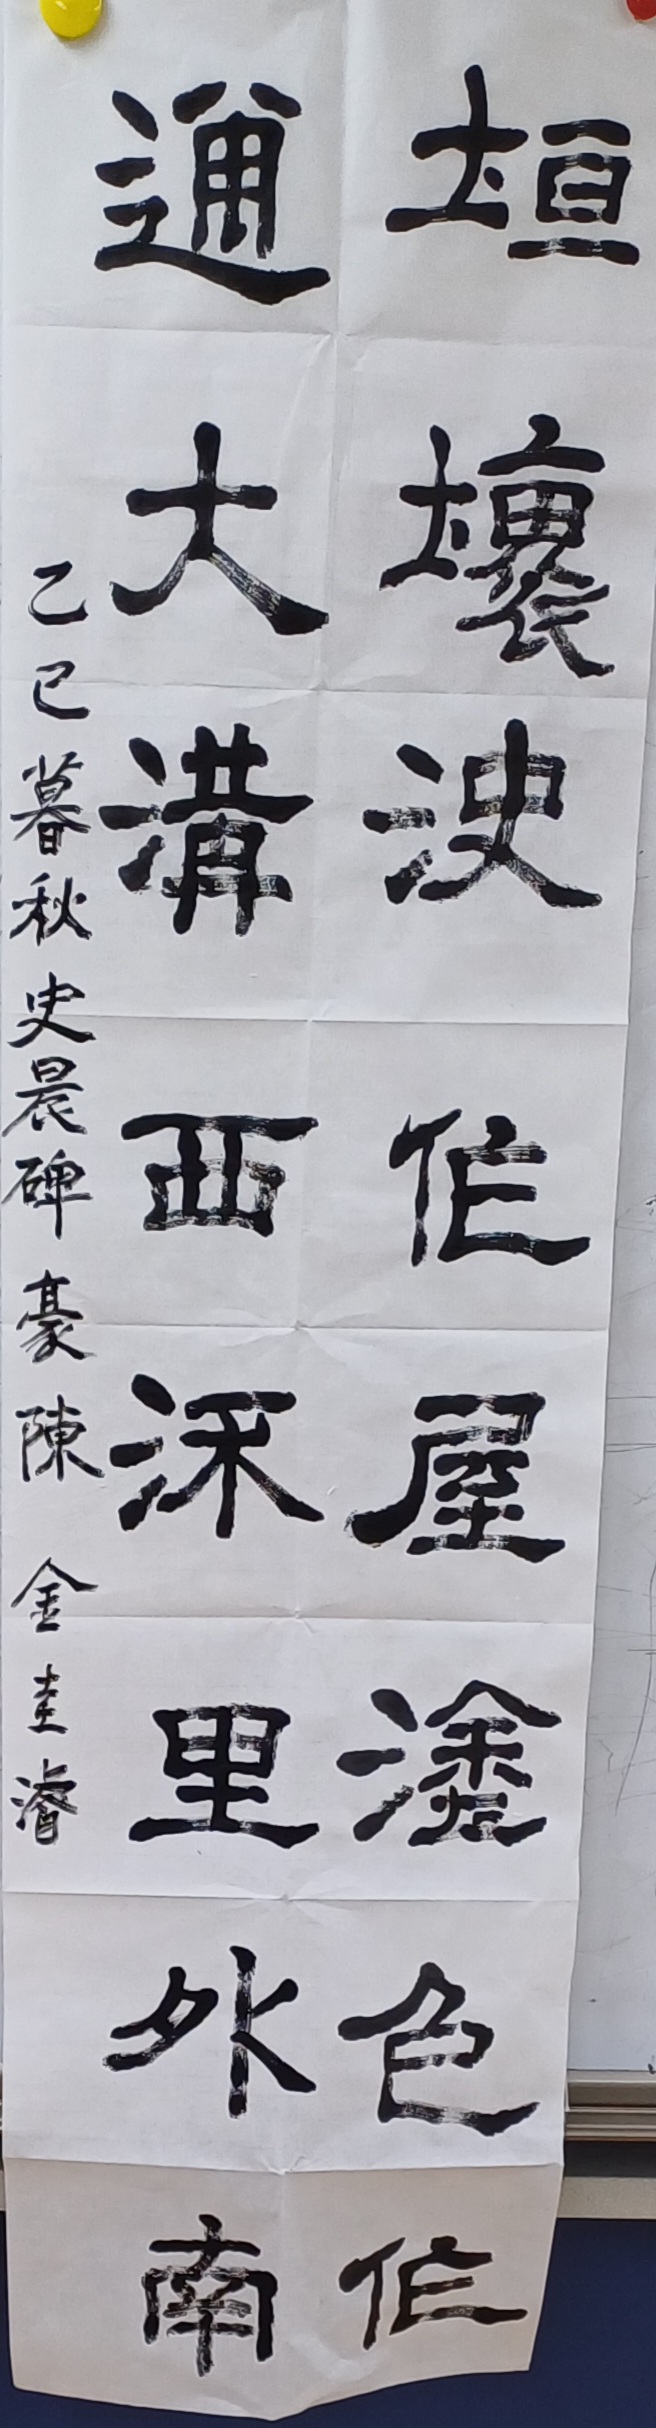 垣壞決作屋塗色作
通大溝西流里外南
乙巳暮秋史晨碑豪陳 金圭濬